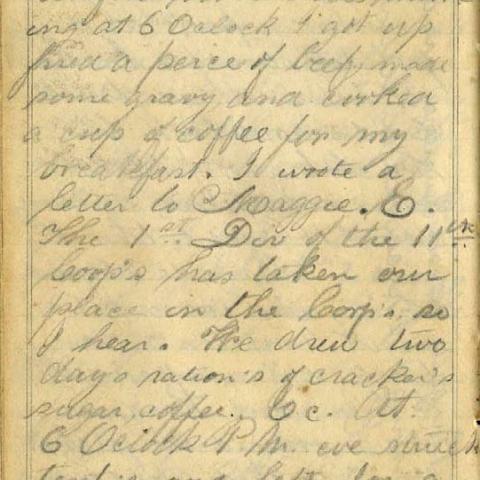 ing at 6 Oclock I got up
fried a peice of beef, made
some gravy and cooked
a cup of coffee for my
breakfast. I wrote a
letter to Maggie. E.
The 1st Div of the 11th
Coop's has taken our
place in the Corp's, so
I hear. We drew two
day's ration's of cracker's
sugar, coffee. &c. At
6 Oclock P. M. we struck
tents and left for a